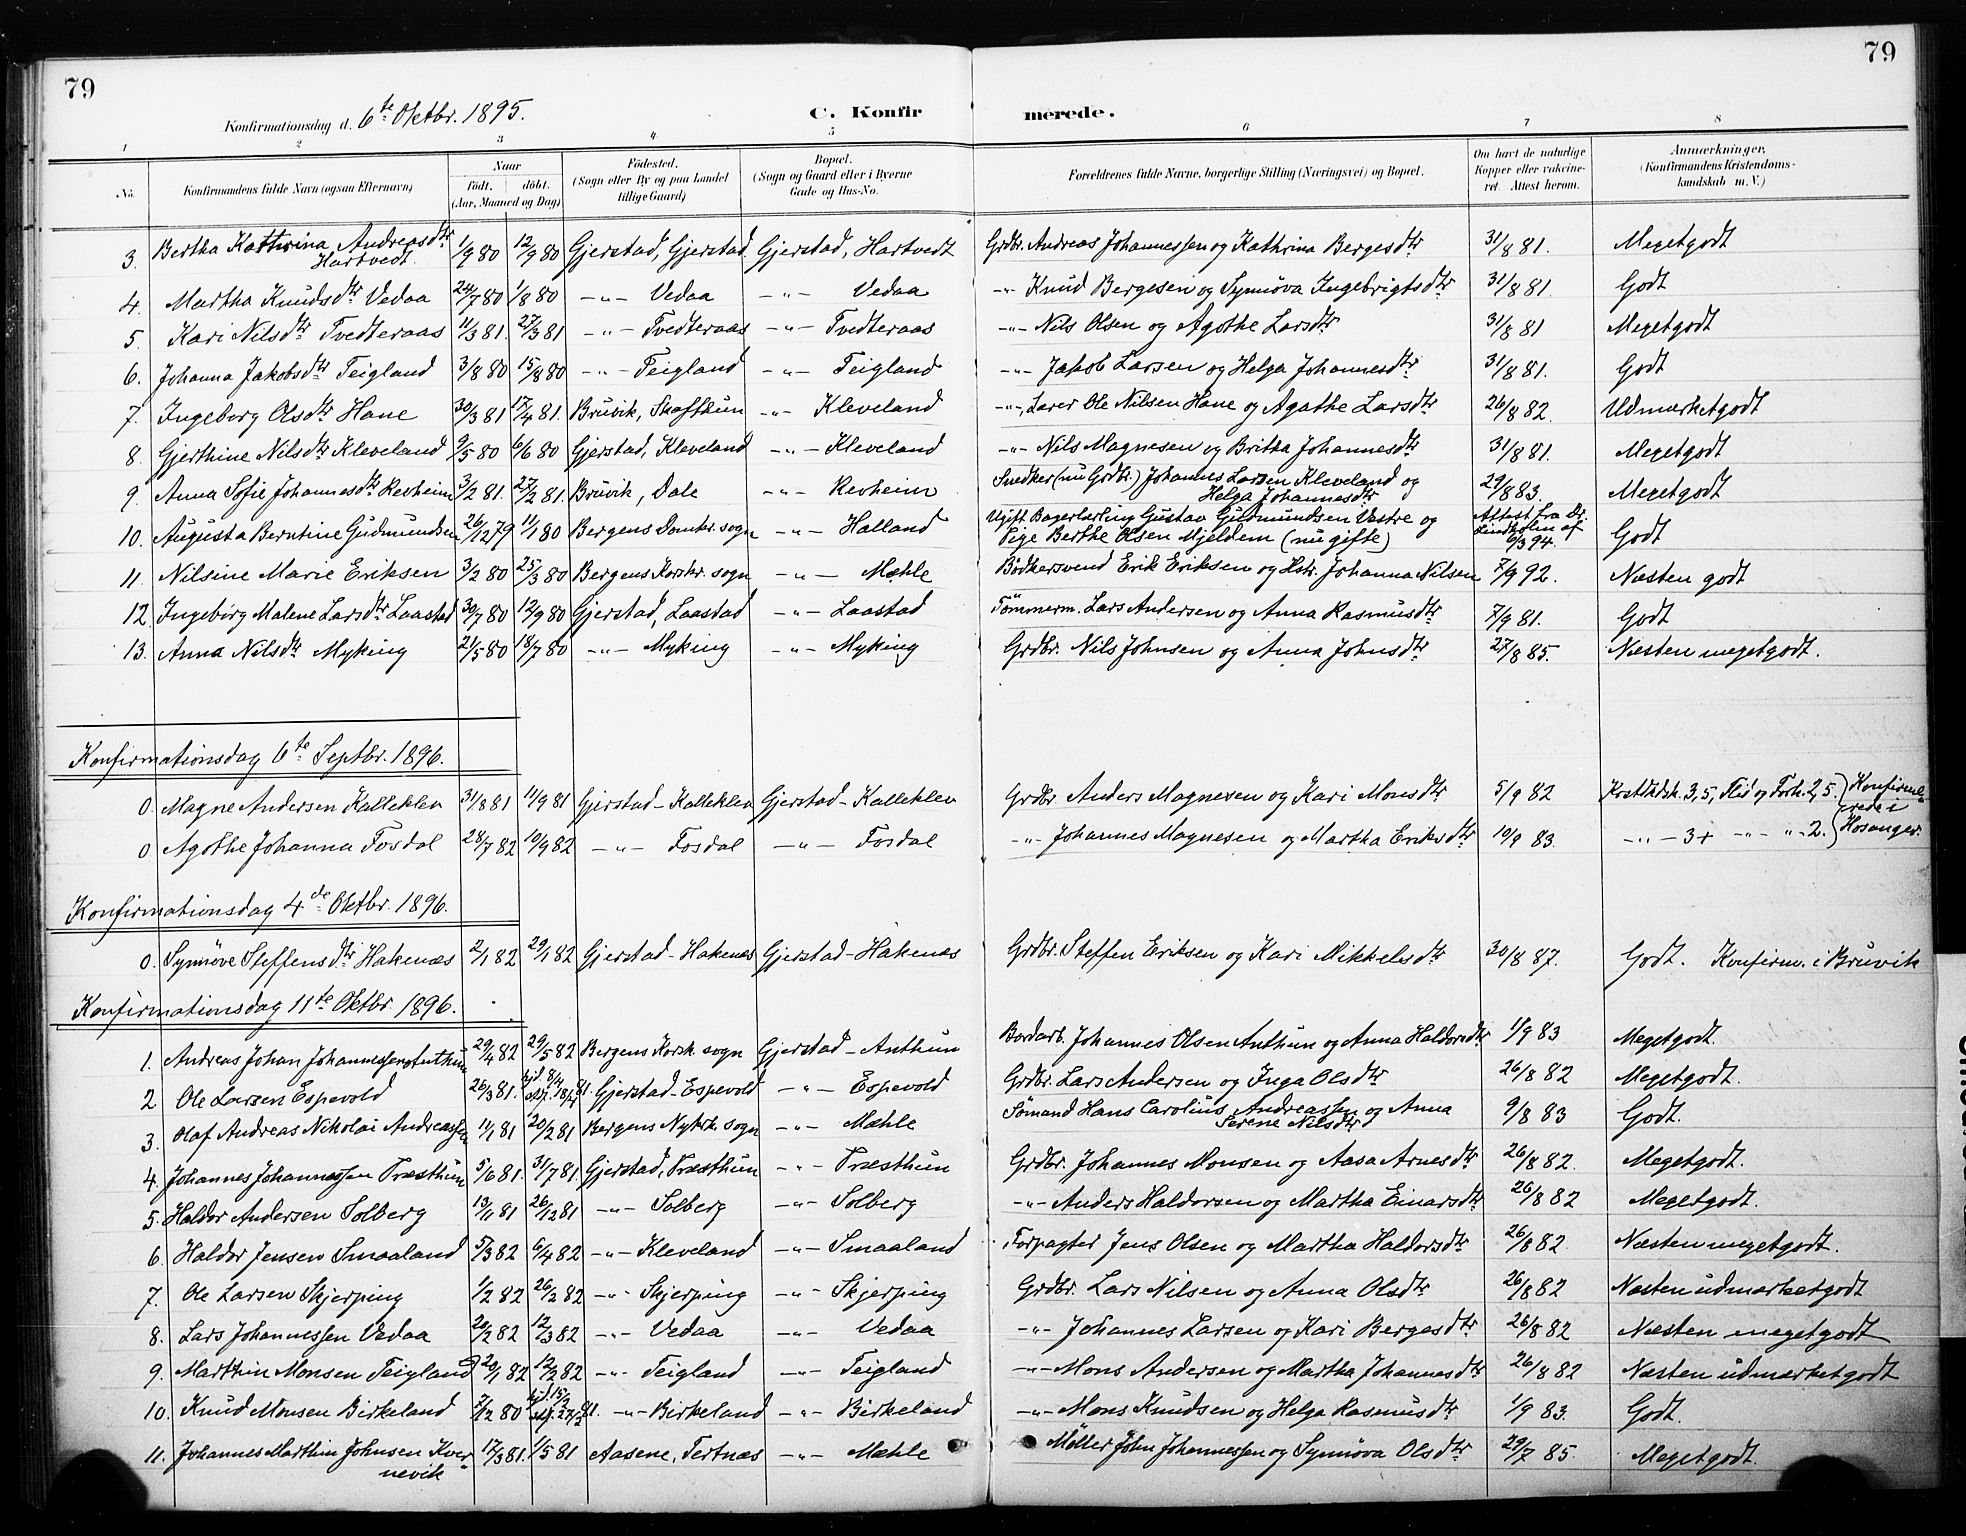 79
79
Konfirmationsdag d. 6te Oktbr. 1895.
C. Konfirmerede.
1 2 3 4 5 6 7 8
No. Konfirmandens fulde Navn (ogsaa Efternavn) Naar født. døbt. (Aar, Maaned og Dag) Fødested. (Sogn eller By og paa Landet tillige Gaard) Bopæl. (Sogn og Gaard eller i Byerne Gade og Hus-No. Forældrenes fulde Navne, borgerlige Stilling (Næringsvei) og Bopæl. Om havt de naturlige Kopper eller vakcineret. Attest herom. Anmærkninger. (Konfirmandens Kristendomskundskab m. V.)
3. Bertha Kathrina Andreasdtr Hartvedt 1/9 80 12/9 80 Gjerstad, Gjerstad Gjerstad, Hartvedt Grdbr. Andreas Johannessen og Kathrina Bergesdtr 31/8 81. Megetgodt
4. Martha Knudsdtr Vedaa 24/7 80 1/8 80 -"- Vedaa -"- Vedaa -"- Knud Bergesen og Synnöva Ingebrigtsdtr 31/8 81. Godt
5. Kari Nilsdtr Tvedteraas 11/3 81. 27/3 81 -"- Tvedteraas -"- Tvedteraas -"- Nils Olsen og Agothe Larsdtr 31/8 81 Megetgodt
6. Johanna Jakobsdtr Teigland 3/8 80 15/8 80 -"- Teigland -"- Teigland -"- Jakob Larsen og Helga Johannesdtr 31/8 81. Godt
7. Ingeborg Olsdtr Hane 30/3 81 17/4 81. Bruvik, Skafthun -"- Kleveland -"- Lærer Ole Nilsen Hane og Agathe Larsdtr 26/8 82 Udmærketgodt
8. Gjerthine Nilsdtr Kleveland 9/5 80 6/6 80 Gjerstad, Kleveland -"- Kleveland -"- Nils Magnesen og Britha Johannesdtr 31/8 81. Megetgodt
9. Anna Sofie Johannesdtr Revheim 3/2 81. 27/2 81. Bruvik, Dale -"- Revheim Snedker (nu Grdbr.) Johannes Larsen Kleveland og Helga Johannesdtr 29/8 83. Megetgodt
10. Augusta Berntine Gudmundsen 26/12 79 11/1 80 Bergens Domk. sogn -"- Halland Ugift Bagerlærling Gustav Gudmundsen Vestre og Pige Berthe Olsen Mjeldem (nu gifte) Attest fra Dr. Lindholm af 6/3 94. Godt
11. Nilsine Marie Eriksen 3/2 80 25/3 80 Bergens Korskr. sogn -"- Mæhle Bödkersvend Erik Eriksen og Hstr. Johanna Nilsen 7/9 92. Næsten godt
12. Ingebörg Malene Larsdtr Laastad 30/7 80 12/9 80 Gjerstad, Laastad -"- Laastad Tömmerm. Lars Andersen og Anna Rasmusdtr 7/9 81. Godt
13. Anna Nilsdtr Myking 21/5 80 18/7 80 -"- Myking -"- Myking Grdbr. Nils Johnsen og Anna Johnsdtr 27/8 85. Næsten megetgodt.
Konfirmationsdag 6te Septbr. 1896.
0. Magne Andersen Kalleklev 31/8 81 11/9 81 Gjerstad-Kalleklev Gjerstad-Kalleklev Grdbr Anders Magnesen og Kari Monsdtr 5/9 82 Krstdsk. 3,5, Flid og Forh. 2,5. Konfirmerede i Hosanger.
0. Agothe Johanna Fosdal 28/7 82 10/9 82 -"- Fosdal -"- Fosdal -"- Johannes Magnesen og Martha Eriksdtr 10/9 83. -"- 3+ -"- "- 2.
Konfirmationsdag 4de Oktbr. 1896.
0. Synnöve Steffensdtr Hakenæs 2/1 82 29/1 82 Gjerstad-Hakenæs Gjerstad-Hakenæs Grdbr. Steffen Eriksen og Kari Mikkelsdtr 30/8 87. Godt. Konfirm. i Bruvik
Konfirmationsdag 11te Oktbr. 1896.
1. Andreas Johan Johannessen Anthun 29/4 82 29/5 82 Bergens Korsk. sogn Gjerstad-Anthun Bordarb. Johannes Olsen Anthun og Anna Haldorsdtr 1/9 83 Megetgodt.
2 Ole Larsen Espevold 26/3 81. hjd. 8/4 81. Gjerstad-Espevold -"- Espevold Grdbr. Lars Andersen og Inga Olsdtr 26/8 82 Megetgodt.
3. Olaf Andreas Nikolai Andreassen 11/1 81 20/2 81 Bergens Nykrk. sogn -"- Mæhle Sömand Hans Carolius Andreassen og Anna Serene Nilsdtr 9/8 83 Godt.
4. Johannes Johannessen Træsthun 5/6 81. 31/7 81. Gjerstad, Træsthun -"- Træsthun Grdbr. Johannes Monsen og Aasa Arnesdtr 26/8 82. Megetgodt.
5. Haldor Andersen Solberg 13/11 81 26/12 81 -"- Solberg -"- Solberg -"- Anders Haldorsen og Martha Einarsdtr 26/8 82 Megetgodt.
6 Haldor Jensen Smaaland 5/3 82 6/4 82 -"- Kleveland -"- Smaaland Forpagter Jens Olsen og Martha Haldorsdtr 26/8 82 Næsten megetgodt.
7. Ole Larsen Skjerping 1/2 82 26/2 82 -"- Skjerping -"- Skjerping Grdbr. Lars Nilsen og Anna Olsdtr 26/8 82 Næsten udmærketgodt
8. Lars Johannessen Vedaa 20/2 82 12/3 82 -"- Vedaa -"- Vedaa -"- Johannes Larsen og Kari Bergesdtr 26/8 82 Næsten megetgodt
9. Marthin Monsen Teigland 20/1 82 12/2 82 -"- Teigland -"- Teigland -"- Mons Andersen og Martha Johannesdtr 26/8 82 Næsten udmærketgodt
10. Knud Monsen Birkeland 7/12 80 81. -"- Birkeland -"- Birkeland -"- Mons Knudsen og Helga Rasmusdtr 1/9 83. Godt.
11. Johannes Marthin Johnsen Kvernevik 17/3 81. 1/5 81 Aasene, Tertnæs -"- Mæhle -"- Møller John Johannessen og Synnöva Olsdtr 29/7 85. Megetgodt.